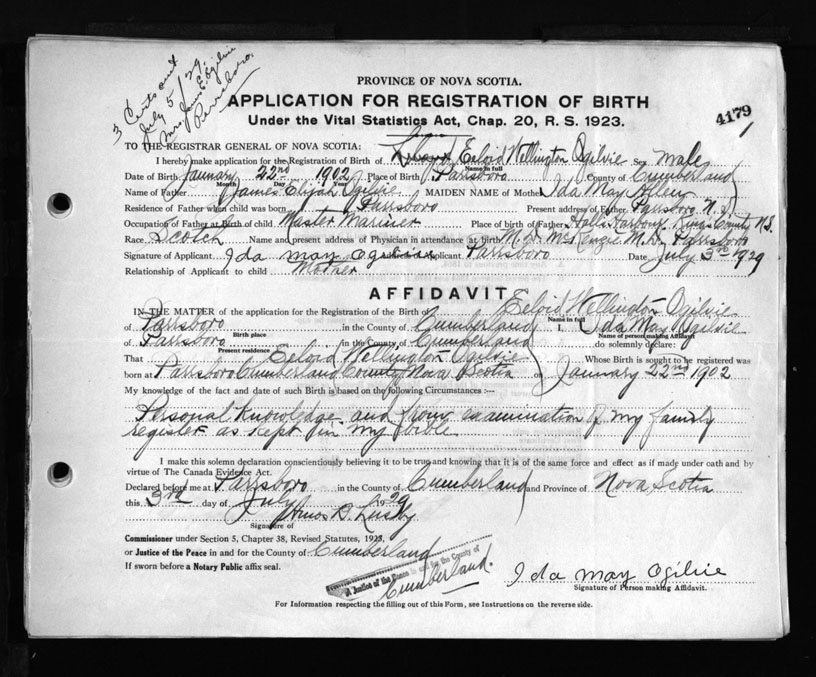 3 Certs sent
July 5/29.
Mrs James E. Ogilvie
Parrsboro.
PROVINCE OF NOVA SCOTIA.
APPLICATION FOR REGISTRATION OF BIRTH
4179
Under the Vital Statistics Act, Chap. 20, R. S. 1923.
1
TO THE REGISTRAR GENERAL OF NOVA SCOTIA:
I hereby make application for the Registration of Birth of Eeloid Wellington Ogilvie Sex male
Name in full
Date of Birth January 22nd 1902 Place of Birth Parrsboro County of Cumberland
Month Day Year
Name of Father James Elijah Ogilvie MAIDEN NAME of Mother Ida May Allen
Residence of Father when child was born Parrsboro Present address of Father Parrsboro N.S.
Occupation of Father at Birth of child Master Mariner Place of birth of Father Halls Harbour Kings County N.S.
Race Scotch Name and present address of Physician in attendance at birth M. D. McKenzie M.D. Parrsboro
Signature of Applicant Ida may Ogilvie Address of Applicant Parrsboro Date July 3rd 1929
Relationship of Applicant to child Mother
AFFIDAVIT
IN THE MATTER of the application for the Registration of the Birth of Eeloid Wellington Ogilvie
Name in full
of Parrsboro in the County of Cumberland I, Ida May Ogilvie
Birth place Name of person making Affidavit
of Parrsboro in the County of Cumberland do solemnly declare:
Present residence
That Eeloid Wellington Ogilvie Whose Birth is sought to be registered was
born at Parrsboro Cumberland County Nova Scotia on January 22nd 1902
My knowledge of the fact and date of such Birth is based on the following Circumstances:—
Personal knowledge and from examination of my family
register as kept in my bible
I make this solemn declaration conscientiously believing it to be true and knowing that it is of the same force and effect as if made under oath and by
virtue of The Canada Evidence Act.
Declared before me at Parrsboro in the County of Cumberland and Province of Nova Scotia
this 3rd day of July 1929
Amos B. Lusby
Signature of
Commissioner under Section 5, Chapter 38, Revised Statutes, 1923,
or Justice of the Peace in and for the County of Cumberland
If sworn before a Notary Public affix seal.
A Justice of the Peace in and for the County of
Cumberland.
Ida may Ogilvie
Signature of Person making Affidavit.
For Information respecting the filling out of this Form, see Instructions on the reverse side.